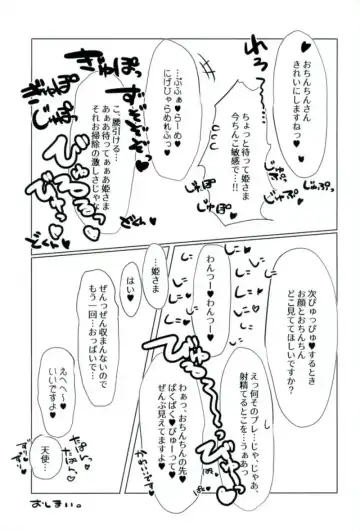 おちんちんさん
きれいにしますねっ♥
れろっ
ちょっと待って姫さま
今ちんこ敏感で…!!
じゅぷっ
じゅぷ。
…ぷふぁ♥らーめ♥
にげひゃらめれふっ♥
ぎゅぽっ
ぞぞぞっ
こ、腰引ける…
あぁあ待ってぁぁあ姫さま
それお掃除の激しさじゃな
どくんっ
次ぴゅっぴゅ♥するとき
お顔とおちんちん
どこ見ててほしいですか?
えっ何そのプレ…じゃ、じゃあ、
射精てるとこを…うぁあっ
わんつー♥わんつー♥
わぁっ、おちんちんの先♥
ぱくぱく♥びゅーって
ぜんぶ見えてますよ♥
…姫さま
はい♥
ぜんっぜん収まんないので
もう一回…おっぱいで…
えへへ〜♥
いいですよ♥
天使…
おしまい。